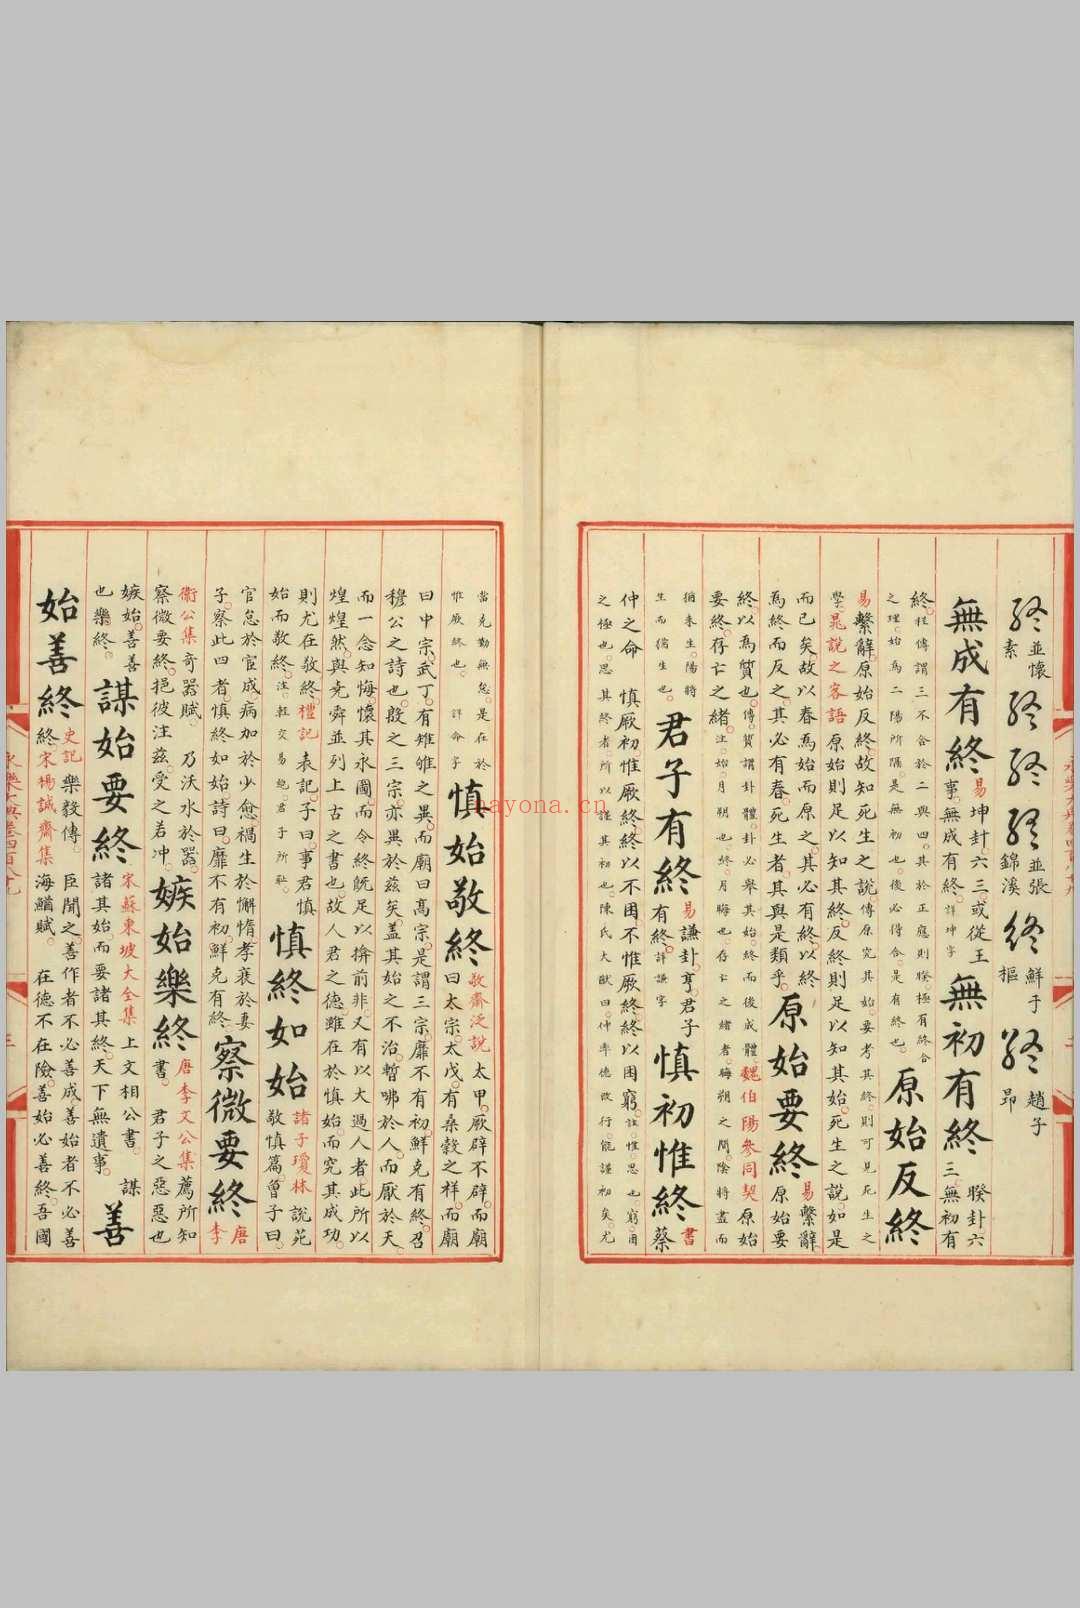 終 並懷素 終 終 終 並張錦溪 終 鮮于樞 終 趙子昂
無成有終 易坤卦六三或從王事無成有終詳坤字 無初有終 睽卦六三無初有
終程傳謂三不合於二與四其於正應則睽極有終合之理始為二陽所隔是無初也後必得合是有終也 原始反終
易繫辭原始反終故知死生之說傳原究其始要考其終則可見死生之
學晁說之客語原始則足以知其終反終則足以知其始死生之說如是
而已矣故以春為始而原之其必有終以終
為終而反之其必有春死生者其與是類乎 原始要終 易繫辭原始要
終以為質也傳質謂卦體卦必舉其始終而後成體魏伯陽參同契原始
要終存亡之緒注始月朔也終月晦也存亡之緒者晦朔之間陰將盡而
猶未生陽將生而猶生也 君子有終 易謙卦亨君子有終詳謙字 慎初惟終 書蔡
仲之命 慎厥初惟厥終終以不困不惟厥終終以困窮註惟思也窮困
之極也思其終者所以謹其初也陳氏大猷曰仲率德改行能謹初矣尤
當克勤無怠是在於惟厥終也詳命字 慎始敬終 敬齋泛說太甲厥辟不辟而廟
曰太宗太戊有桑穀之祥而廟
曰中宗武丁有雉雊之異而廟曰高宗是謂三宗靡不有初鮮克有終召
穆公之詩也殷之三宗亦異於茲矣蓋其始之不治暫咈於人而厭於天
而一念知悔懷其永圖而令終旣足以揜前非又有以大過人者此所以
煌煌然與堯舜並列上古之書也故人君之德雖在於慎始而究其成功
則尤在敬終禮記表記子曰事君慎
始而敬終注輕交易絕君子所恥 慎終如始 諸子瓊林說苑敬慎篇曾子曰
官怠於宦成病加於少愈禍生於懈惰孝衰於妻
子察此四者慎終如始詩曰靡不有初鮮克有終 察微要終 唐李
衞公集奇器賦 乃沃水於器
察微要終挹彼注茲受之若冲 嫉始樂終 唐李文公集薦所知書 君子之惡惡也
嫉始善善也樂終 謀始要終 宋蘇東坡大全集上文相公書 謀諸其始而要諸其終天下無遺事 善
始善終 史記樂毅傳 臣聞之善作者不必善成善始者不必善終宋楊誠齋集海鰌賦 在德不在險善始必善終吾國
nayona.cn